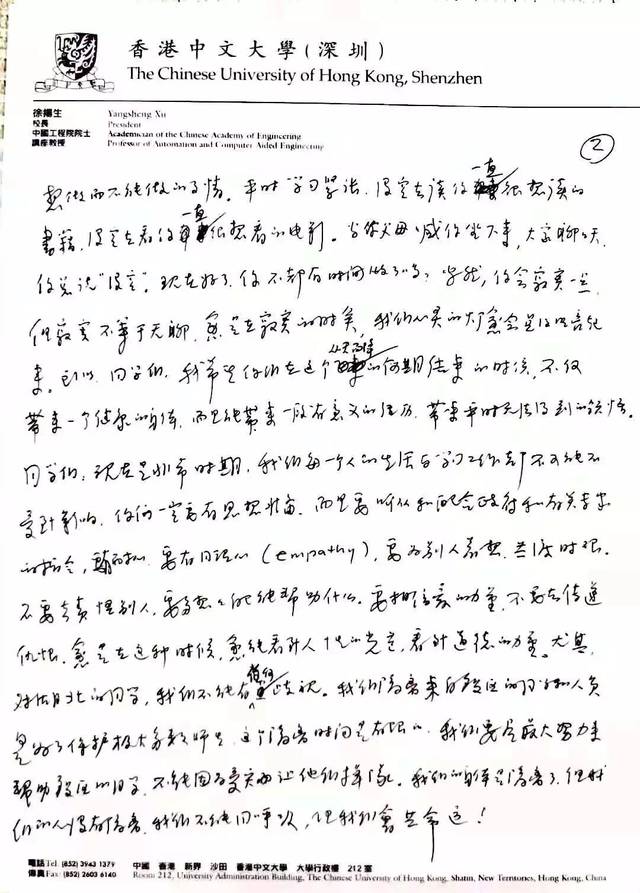 香港中文大學(深圳)
The Chinese University of Hong Kong, Shenzhen
徐揚生 Yangsheng Xu
校長 President
中國工程院院士 Academician of the Chinese Academy of Engineering
講座教授 Professor of Automation and Computer Aided Engineering
②
想做而不能做的事情。平时学习紧张，没空去读你一直很想读的
书籍，没空去看你一直很想看的电影。当你父母喊你坐下来，大家聊聊天，
你总说"没空"。现在好了，你不都有时间做了吗？当然，你会寂寞一些，
但寂寞不等于无聊，愈是在寂寞的时候，我们心灵的大门愈会是
来。所以，同学们，我希望你们在这个 假期结束的时候，不仅
带来一个健康的身体，而且能带来一段有意义的经历，带来平时无法得到的领悟。
同学们，现在是非常时期，我们每一个人的生活与学习工作都不可能不
受到影响，你们一定要有思想准备，而且要听从和配合政府和有关专家
的指令，要有同理心 (empathy)，要为别人着想，共渡时艰。
不要去责怪别人，要多想想能帮助什么。要相信爱的力量，不要去传递
仇恨。愈是在这种时候，愈能看到人性的光芒，看到道德的力量。尤其，
对湖北的同学，我们不能有任何歧视。我们隔离来自疫区的同学和人员
是为了保护极大多数师生，这个隔离时间是有限的，我们要尽最大努力来
帮助疫区的同学，不能因为受灾而让他们掉队。我们的身体是隔离了，但我
们的心没有隔离，我们不能同呼吸，但我们会共命运！
電話 Tel: (852) 3943 1379 中國 香港 新界 沙田 香港中文大學 大學行政樓 212 室
傳真 Fax: (852) 2603 6140 Room 212, University Administration Building, The Chinese University of Hong Kong, Shatin, New Territories, Hong Kong, China